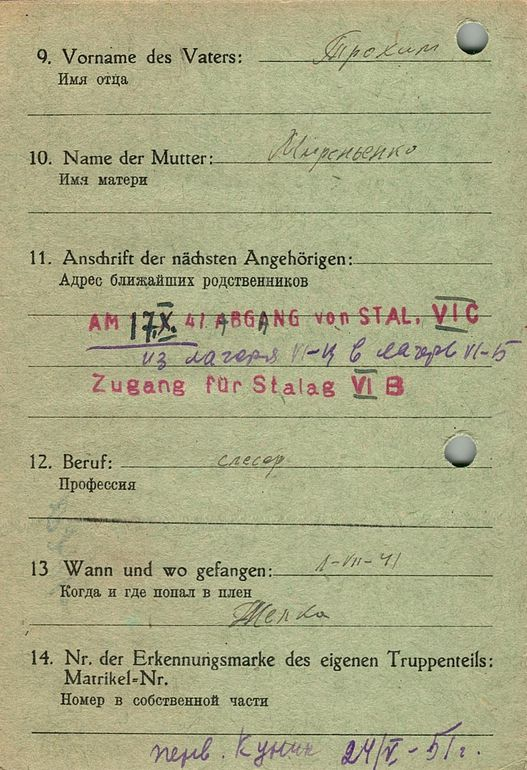 9. Vorname des Vaters: Трохим
Имя отца
10. Name der Mutter:
Имя матери
11. Anschrift der nächsten Angehörigen:
Адрес ближайших родственников
AM 17.X. 41 ABGANG von STAL. VI C
из лагеря VI-Ц в лагерь VI-Б
Zugang für Stalag VI B
12. Beruf: слесар
Профессия
13 Wann und wo gefangen: -VII-41
Когда и где попал в плен
14. Nr. der Erkennungsmarke des eigenen Truppenteils:
Matrikel-Nr.
Номер в собственной части
перв. 24/V-51 г.